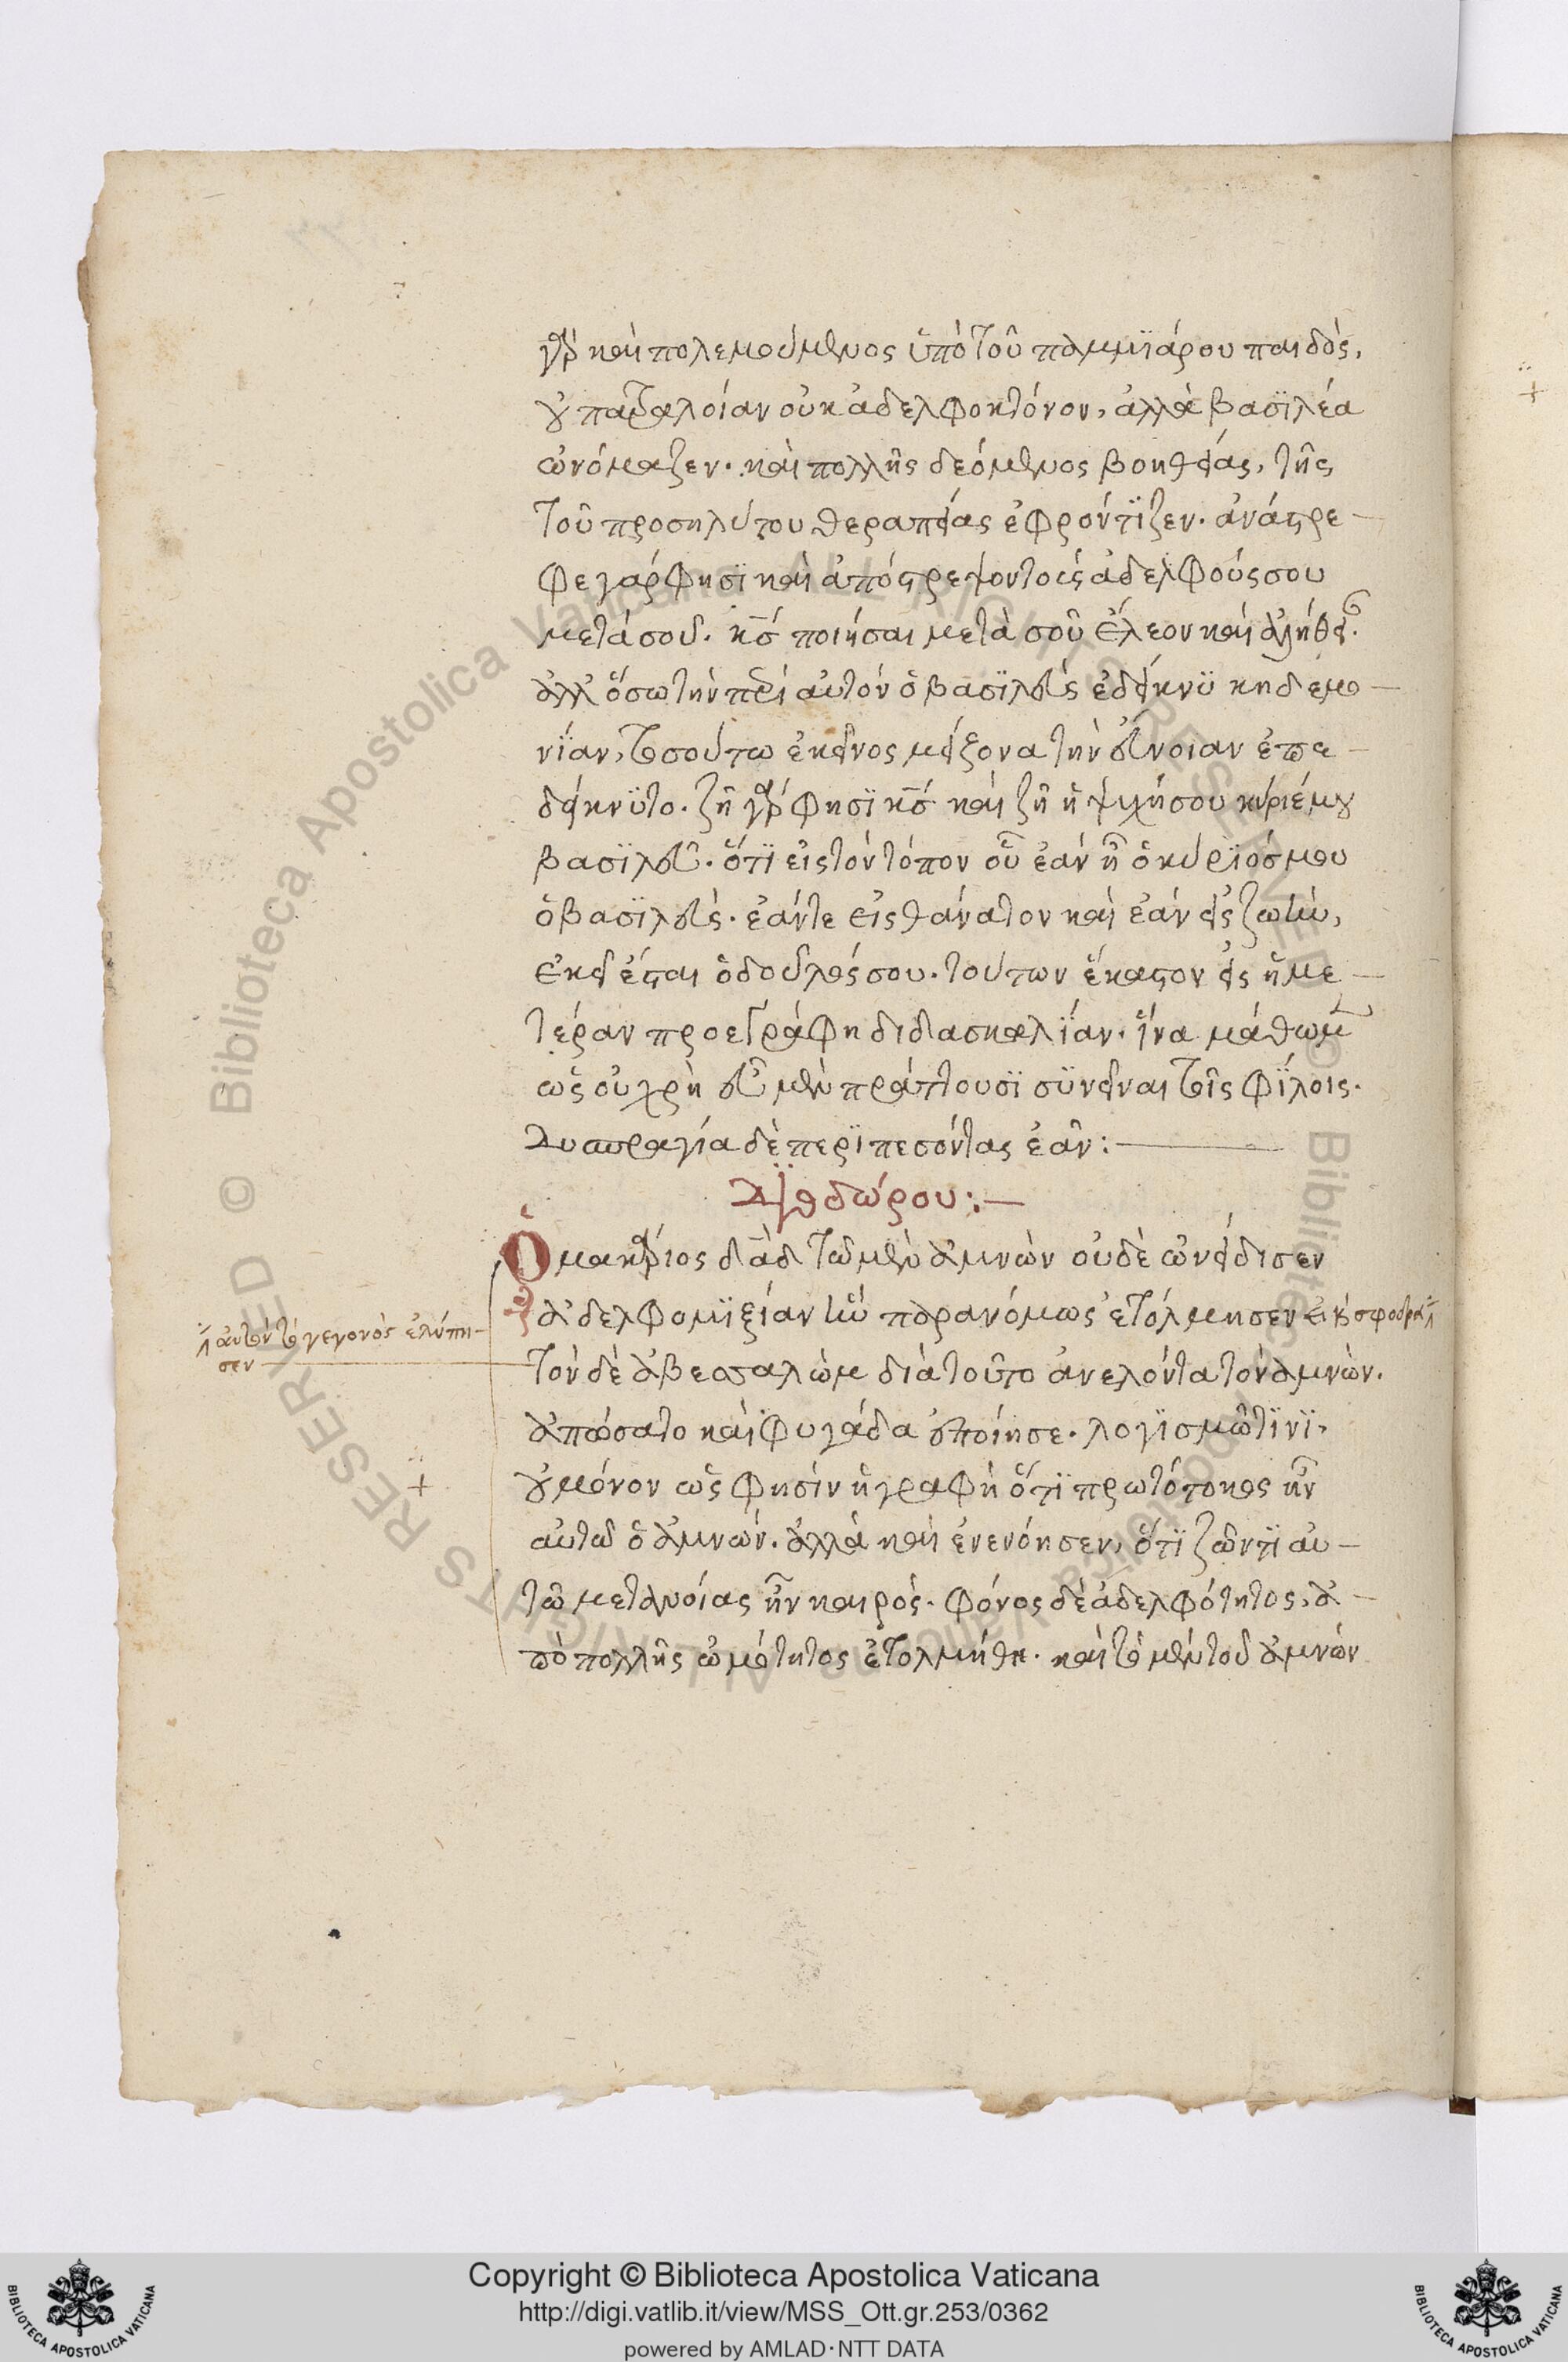 γὰρ καὶ πολεμούμενος ὑπὸ τοῦ παμμϊάρου παιδὸς,
οὐ πατραλοίαν οὐκ ἀδελφοκτόνον, ἀλλὰ βασϊλέα
ὠνόμαζεν. καὶ πολλῆς δεόμενος βοηθείας, τῆς
τοῦ προσηλύτου θεραπείας ἐφρόντϊζεν. ἀνάστρε-
φε γάρ φησϊ καὶ ἀπόστρεψον τοὺς ἀδελφούς σου
μετά σου. κς ποιήσαι μετὰ σοῦ ἔλεον καὶ ἀλήθει
ἀλλ' ὅσω τὴν περὶ αὐτὸν ὁ βασϊλεὺς ἐδείκνϋ κηδεμο-
νΐαν, τοσούτω ἐκεῖνος μείζονα τὴν εὔνοιαν ἐπε-
δείκνϋτο. ζῆ γάρ φησϊ κς καὶ ζῆ ἡ ψυχή σου κύριέ μου
βασϊλεῦ. ὅτϊ εἰς τὸν τόπον οὗ ἐὰν ἦ ὁ κύρϊός μου
ὁ βασϊλεὺς. ἐάν τε εἰς θάνατον καὶ ἐὰν εἰς ζωὴν,
ἐκεῖ ἔσται ὁ δοῦλός σου. τούτων ἕκαστον εἰς ἡμε-
τέραν προεγράφη διδασκαλΐαν. ἵνα μάθωμεν
ὡς οὐ χρὴ εὖ μὲν πράττουσϊ σϋνεῖναι τοῖς φΐλοις.
δυσπραγία δὲ περϊπεσόντας ἐᾶν:
Διοδώρου:
Ὁ μακάριος δαδ τῶ μὲν ἀμνὼν οὐδὲ ὠνείδισεν
ἀδελφομϊξίαν ἣν παρανόμως ἐτόλμησεν εἰ κ σφοδρὰ
αὐτὸν τὸ γεγονὸς ἐλύπη-
σεν
τὸν δὲ ἀβεσσαλὼμ διὰ τοῦτο ἀνελόντα τὸν ἀμνὼν.
ἀπώσατο καὶ φυγάδα ἐποίησε. λογϊσμῶ τϊνϊ.
οὐ μόνον ὡς φησὶν ἡ γραφὴ ὅτϊ πρωτότοκος ἦν
αὐτῶ ὁ ἀμνών. ἀλλὰ καὶ ἐνενόησεν, ὅτϊ ζῶντϊ αὐ-
τῶ μετανοίας ἦν καιρός. φόνος δὲ ἀδελφότητος, ἀ-
πὸ πολλῆς ὠμότητος ἐτολμήθη. καὶ τὸ μὲν τοῦ ἀμνὼν
Copyright © Biblioteca Apostolica Vaticana
http://digi.vatlib.it/view/MSS_Ott.gr.253/0362
powered by AMLAD·NTT DATA
BIBLIOTECA APOSTOLICA VATICANA
BIBLIOTECA APOSTOLICA VATICANA